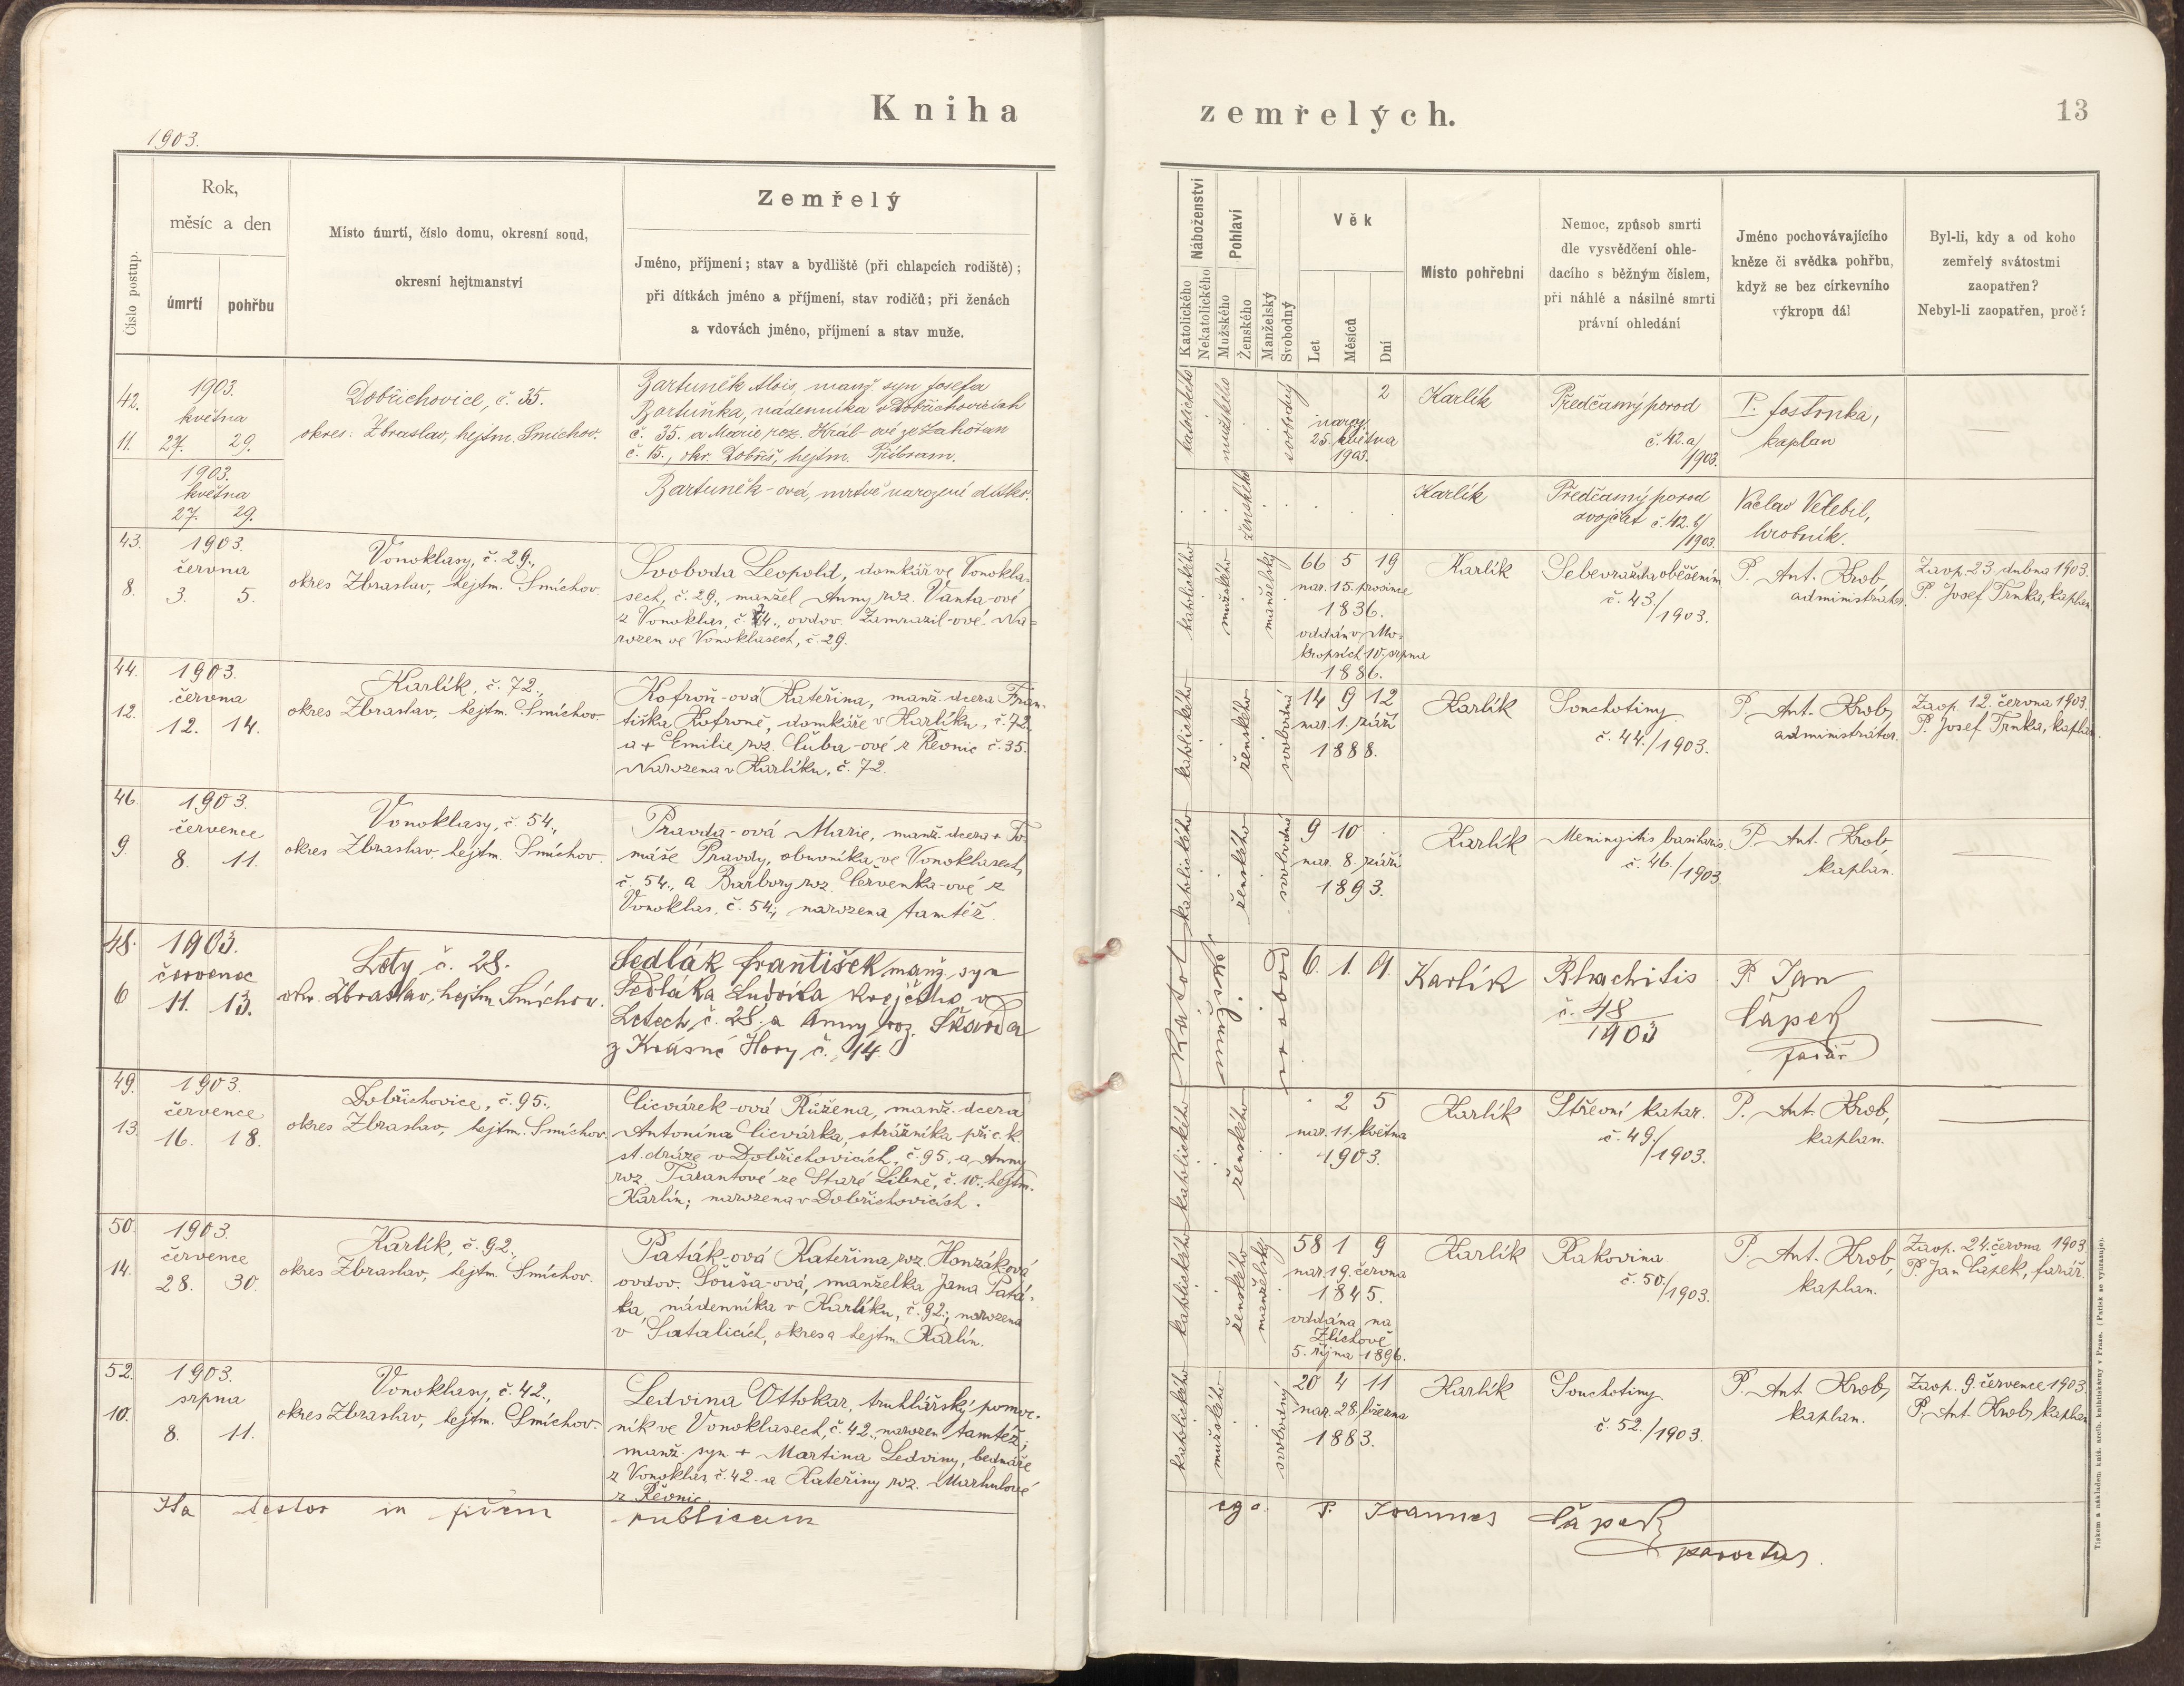 Kniha
zemřelých.
13
1903.
Číslo postup.
Rok,
měsíc a den
úmrtí
pohřbu
Místo úmrtí, číslo domu, okresní soud,
okresní hejtmanství
Zemřelý
Jméno, příjmení; stav a bydliště (při chlapcích rodiště);
při dítkách jméno a příjmení, stav rodičů; při ženách
a vdovách jméno, příjmení a stav muže.
Náboženství
Katolického
Nekatolického
Pohlaví
Mužského
Ženského
Manželský
Svobodný
Věk
Let
Měsíců
Dní
Místo pohřební
Nemoc, způsob smrti
dle vysvědčení ohle-
dacího s běžným číslem,
při náhlé a násilné smrti
právní ohledání
Jméno pochovávajícího
kněze či svědka pohřbu,
když se bez církevního
výkropu dál
Byl-li, kdy a od koho
zemřelý svátostmi
zaopatřen?
Nebyl-li zaopatřen, proč?
42.
11.
1903.
května
27. 29.
Dobřichovice, č. 35.
okres: Zbraslav, hejtm. Smíchov.
Bartuněk Alois, manž. syn Josefa
Bartuňka, nádenníka v Dobřichovicích
č. 35. a Marie roz. Král-ové ze Zahořan
č. 15., okr. Dobříš, hejtm. Příbram.
katolického
mužského
svobodný
2
naroz.
25. května
1903.
Karlík
Předčasný porod
č. 42.a/
1903.
P. Jos. Trnka,
kaplan
1903.
května
27. 29.
Bartuněk-ová, mrtvě narozené dítko.
ženského
Karlík
Předčasný porod
dvojčat č. 42.b/
1903.
Václav Vetebil,
hrobník.
43.
8.
1903.
června
3. 5.
Vonoklasy, č. 29.,
okres Zbraslav, hejtm. Smíchov.
Svoboda Leopold, domkář ve Vonokla-
sech, č. 29., manžel Anny roz. Vanta-ové
z Vonoklas, č. 4., ovdov. Zamrazil-ové. Na-
rozen ve Vonoklasech, č. 29.
katolického
mužského
manželský
66 5 19
nar. 15. prosince
1836.
oddán v Mo-
kropsích 10. srpna
1886.
Karlík
Sebevražda oběšením
č. 43./
1903.
P. Ant. Krob,
administrátor.
Zaop. 23. dubna 1903.
P. Josef Trnka, kaplan.
44.
12.
1903.
června
12. 14.
Karlík, č. 72.,
okres Zbraslav, hejtm. Smíchov.
Kofroň-ová Kateřina, manž. dcera Fran-
tiška Kofroně, domkáře v Karlíku, č. 72.,
a + Emilie roz. Čuba-ové z Řevnic č. 35.
Narozena v Karlíku, č. 72.
katolického
ženského
svobodná
14 9 12
nar. 1. září
1888.
Karlík
Souchotiny
č. 44./1903.
P. Ant. Krob,
administrátor.
Zaop. 12. června 1903.
P. Josef Trnka, kaplan.
46.
9.
1903.
července
8. 11.
Vonoklasy, č. 54.,
okres Zbraslav, hejtm. Smíchov.
Pravda-ová Marie, manž. dcera + To-
máše Pravdy, obuvníka ve Vonoklasech,
č. 54., a Barbory roz. Červenka-ové z
Vonoklas, č. 54.; narozena tamtéž.
katolického
ženského
svobodná
9 10
nar. 8. září
1893.
Karlík
Meningitis basilaris.
č. 46./1903.
P. Ant. Krob,
kaplan.
48.
6
1903.
červenec
11. 13.
Lety č. 28.
okr. Zbraslav, hejtm. Smíchov.
Sedlák František, manž. syn
Sedláka Ludvíka krejčího v
Letech č. 28. a Anny roz. Škarda
z Krásné Hory č. 14
Katol.
mužské
svobod
6. 1. 9.
Karlík
Rhachitis
č. 48
1903
P. Jan
Čápek
farář
49.
13.
1903.
července
16. 18.
Dobřichovice, č. 95.,
okres Zbraslav, hejtm. Smíchov.
Cicvárek-ová Růžena, manž. dcera
Antonína Cicvárka, strážníka při c. k.
st. dráze v Dobřichovicích, č. 95., a Anny
roz. Tarantové ze Staré Libně, č. 10., hejtm.
Karlín; narozena v Dobřichovicích.
katolického
ženského
2 5
nar. 11. května
1903.
Karlík
Střevní katar.
č. 49./
1903.
P. Ant. Krob,
kaplan.
50.
14.
1903.
července
28. 30.
Karlík, č. 92.,
okres Zbraslav, hejtm. Smíchov.
Paták-ová Kateřina roz. Honzáková
ovdov. Souša-ová, manželka Jana Patá-
ka, nádenníka v Karlíku, č. 92.; narozena
v Satalicích, okres a hejtm. Karlín.
katolického
ženského
manželský
58 1 9
nar. 19. června
1845.
oddána na
Zlíchově
5. října 1896.
Karlík
Rakovina
č. 50./1903.
P. Ant. Krob,
kaplan.
Zaop. 24. června 1903.
P. Jan Čápek, farář.
52.
10.
1903.
srpna
8. 11.
Vonoklasy, č. 42.,
okres Zbraslav, hejtm. Smíchov.
Ledvina Ottokar, truhlářský pomoc-
ník ve Vonoklasech, č. 42., narozen tamtéž;
manž. syn + Martina Ledviny, bednáře
z Vonoklas č. 42. a Kateřiny roz. Marhulové
z Řevnic.
katolického
mužského
svobodný
20 4 11
nar. 28. března
1883.
Karlík
Souchotiny.
č. 52./1903.
P. Ant. Krob,
kaplan.
Zaop. 9. července 1903.
P. Ant. Krob, kaplan
Ita testor in fidem publicam
ego P. Joannes Čápek
parochus.
Tiskem a nákladem kníž. arcib. knihtiskárny v Praze. (Patisk se vyhrazuje).